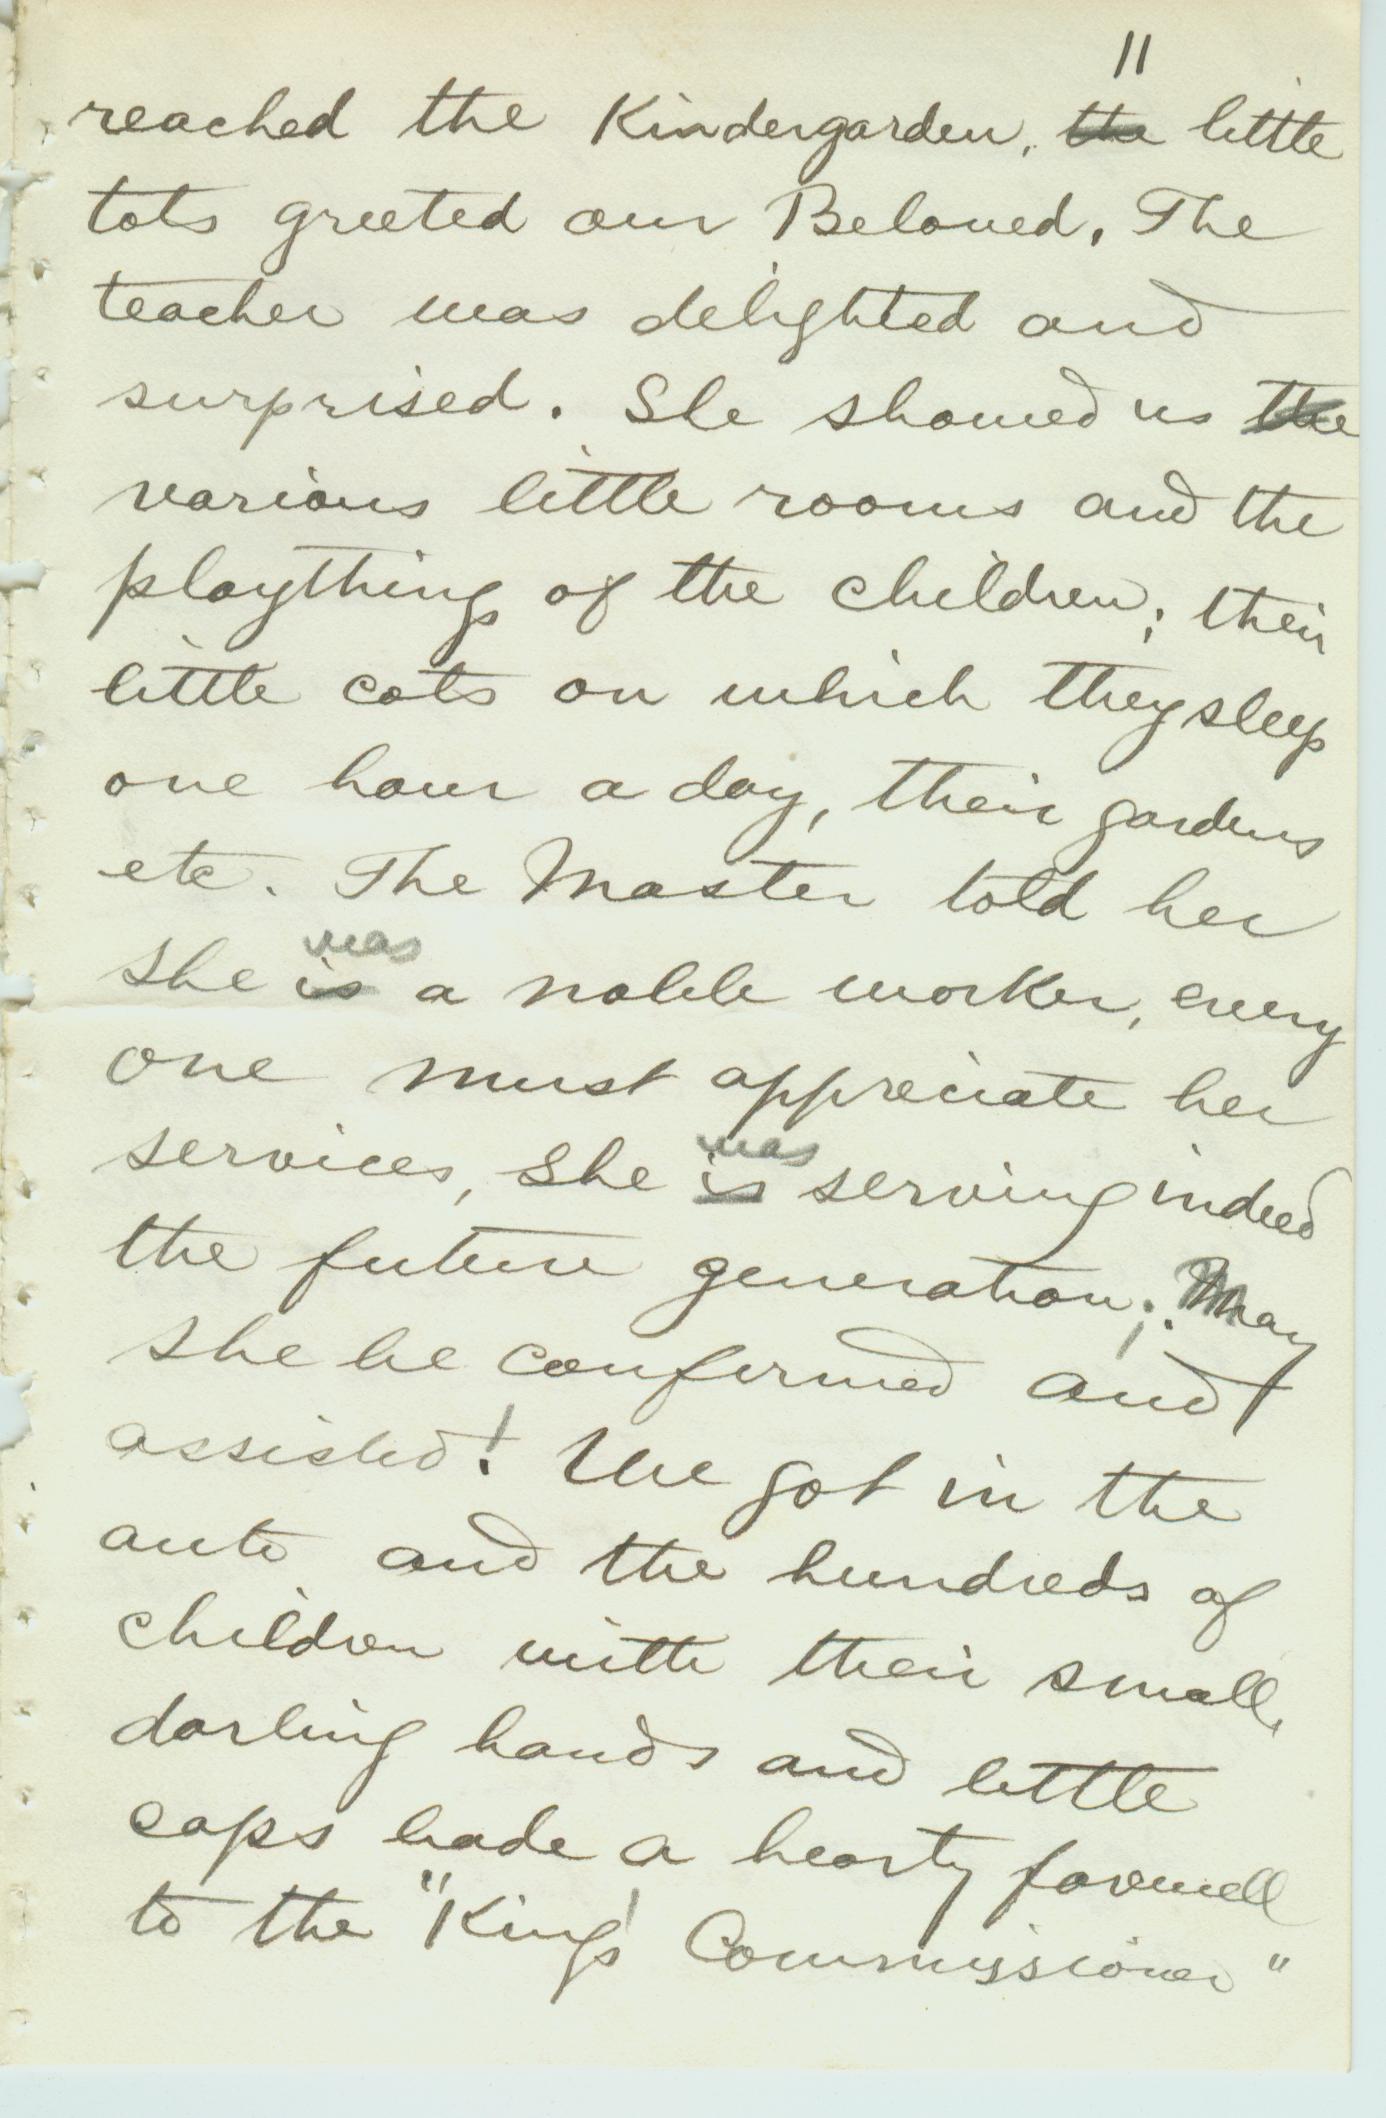 11
reached the Kindergarden, the little
tots greeted our Beloved. The
teacher was delighted and
surprised. She showed us the
various little rooms and the
playthings of the children; their
little cots on which they sleep
one hour a day, their gardens
etc. The Master told her
was
she is a noble worker, every
one must appreciate her
was
services, she is serving indeed
the future generation; May
she be confirmed and
assisted! We got in the
auto and the hundreds of
children with their small,
darling hands and little
caps bade a hearty farewell
to the "King's Commissioner"